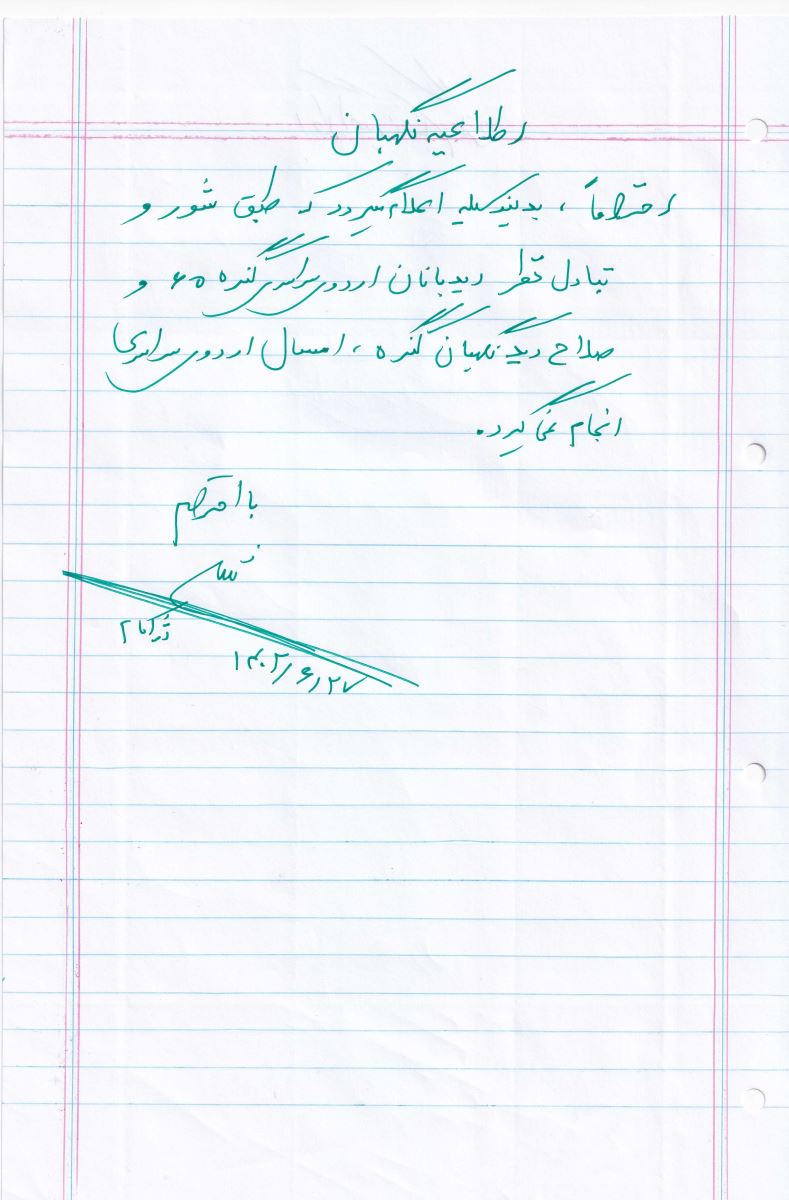 اطلاعیه نگهبان
احتراماً، بدینوسیله اعلام میگردد که طبق شور و
تبادل نظر دیدبانان اردوی سراسری کنگره ۶۰ و
صلاح دید نگهبان کنگره، امسال اردوی سراسری
انجام نمی گیرد.
با احترام
۱۴۰۲/۶/۲۷